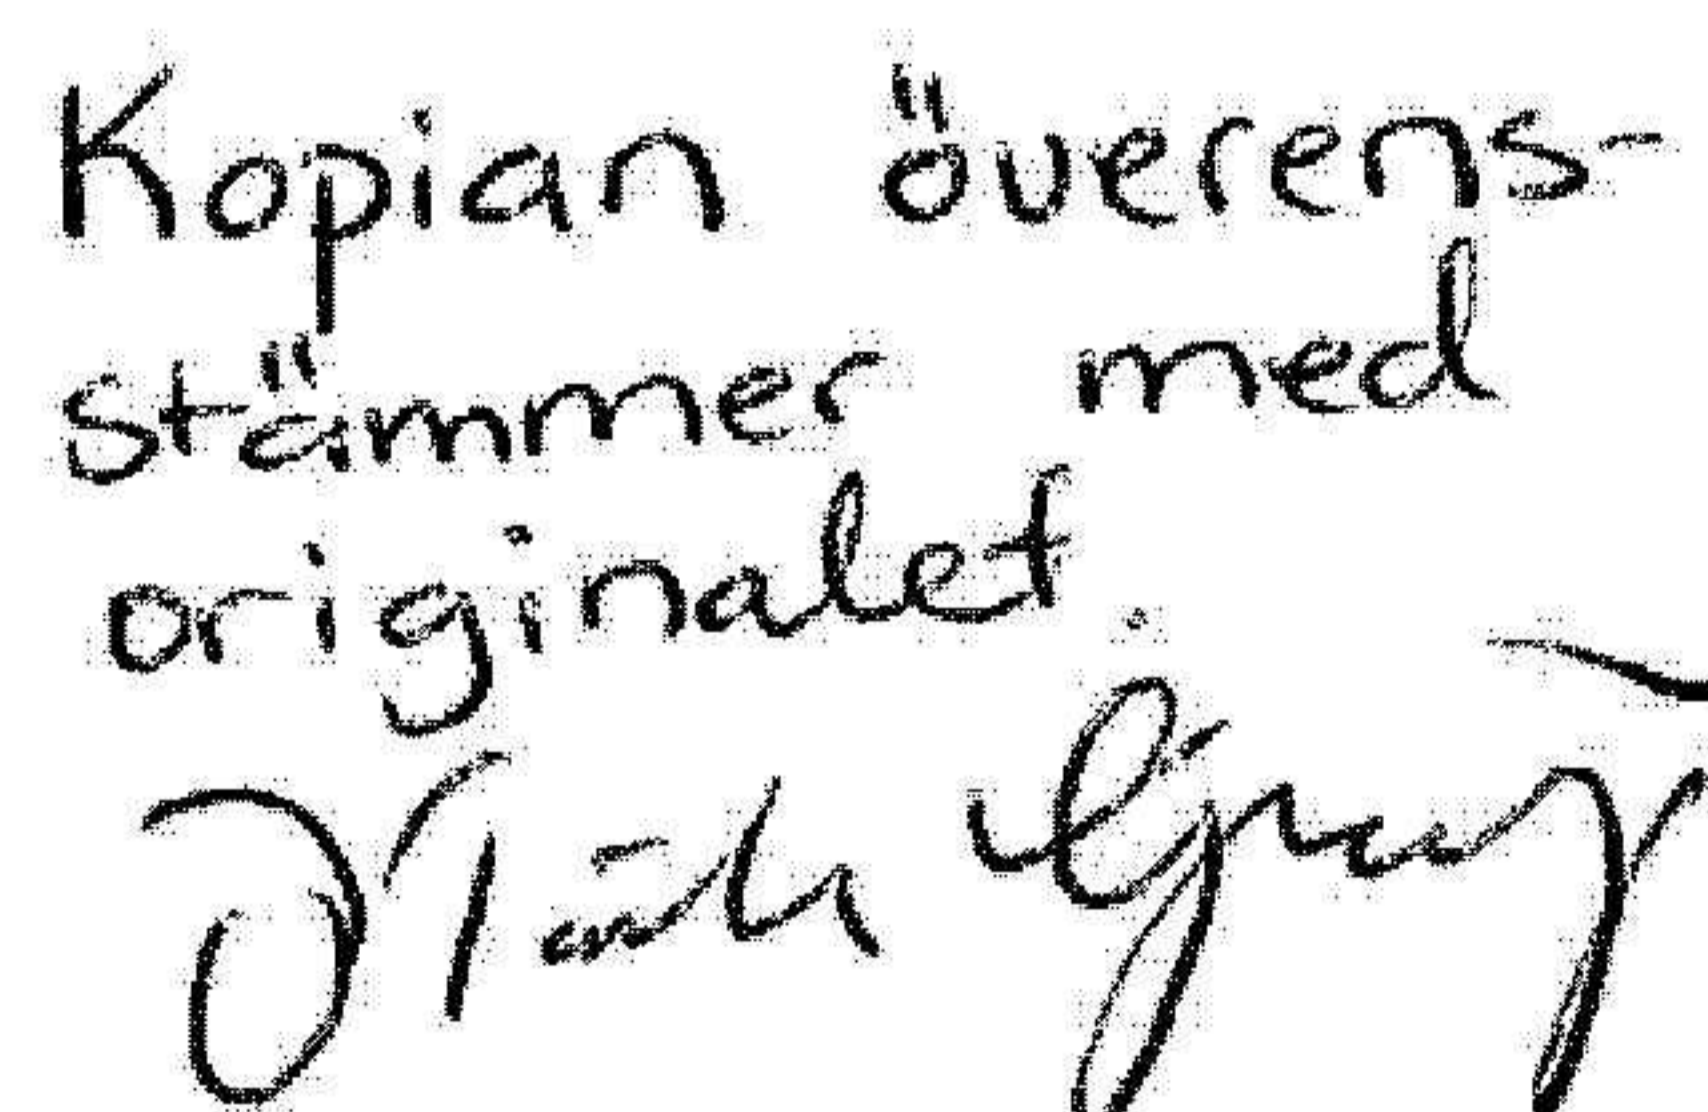 Kopian överens-
stämmer med
originalet.